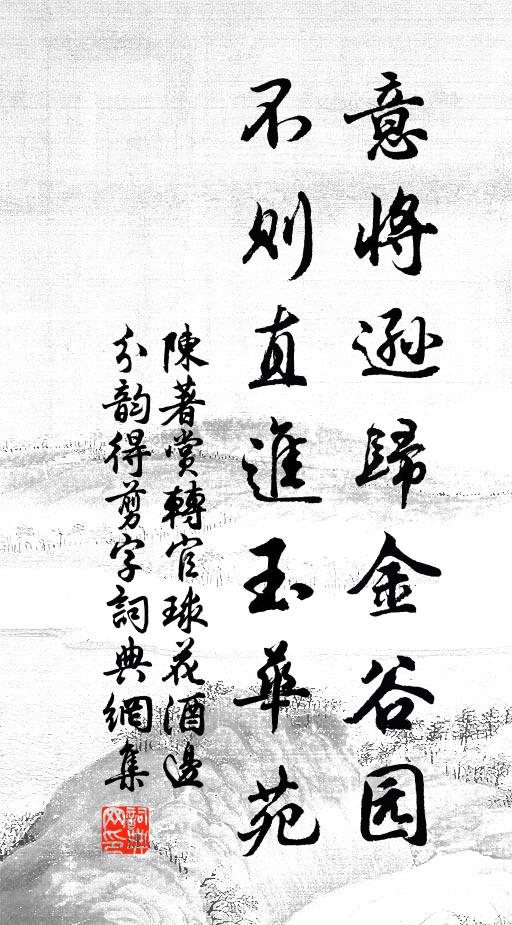 意將遜歸金谷园
不则直進玉華苑
陳著賞轉官球花酒邊
分韵得剪字詞典網集